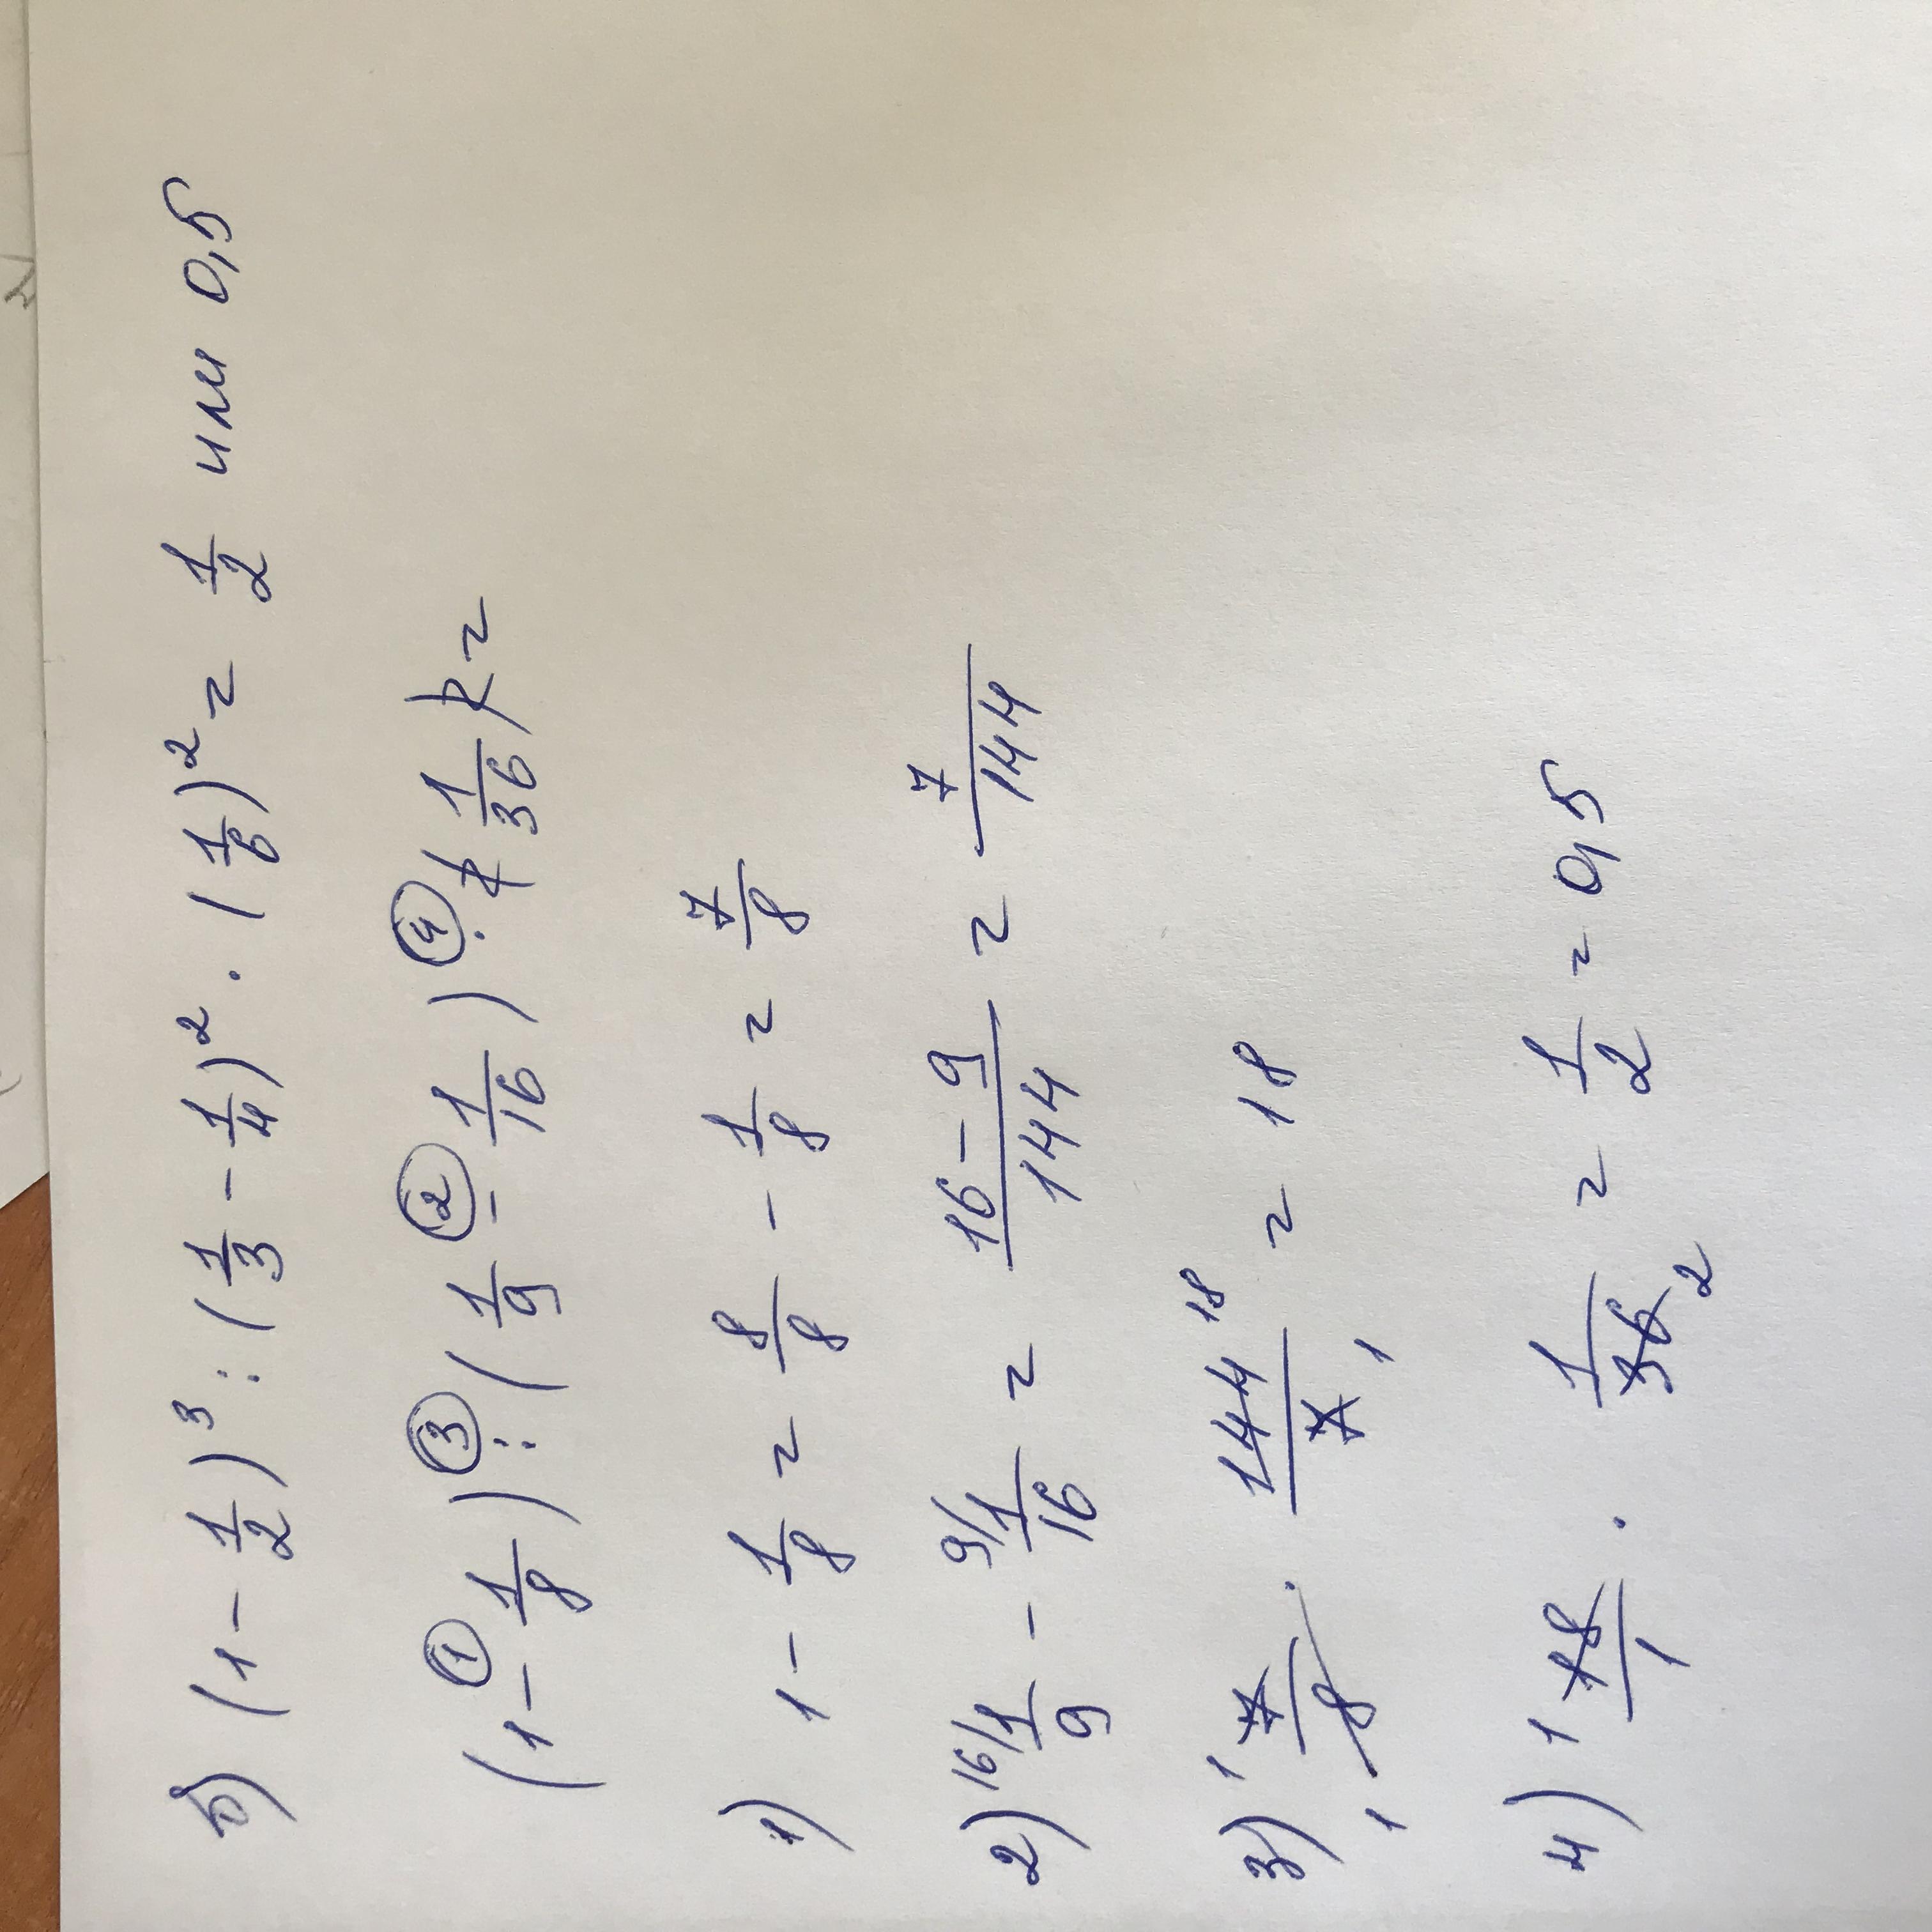 б) (1 - 1/2)³ : (1/3 - 1/4)² · (1/6)² = 1/2 или 0,5
(1 -① 1/8) :③ (1/9 -② 1/16) ·④ 1/36 =
1) 1 - 1/8 = 8/8 - 1/8 = 7/8
2) 16/ 1/9 - 9/ 1/16 = (16 - 9)/144 = 7/144
3) ¹ 7/8 ₁ · 144/7 ¹⁸ ₁ = 18
4) 1 18/1 · 1/36 ₂ = 1/2 = 0,5